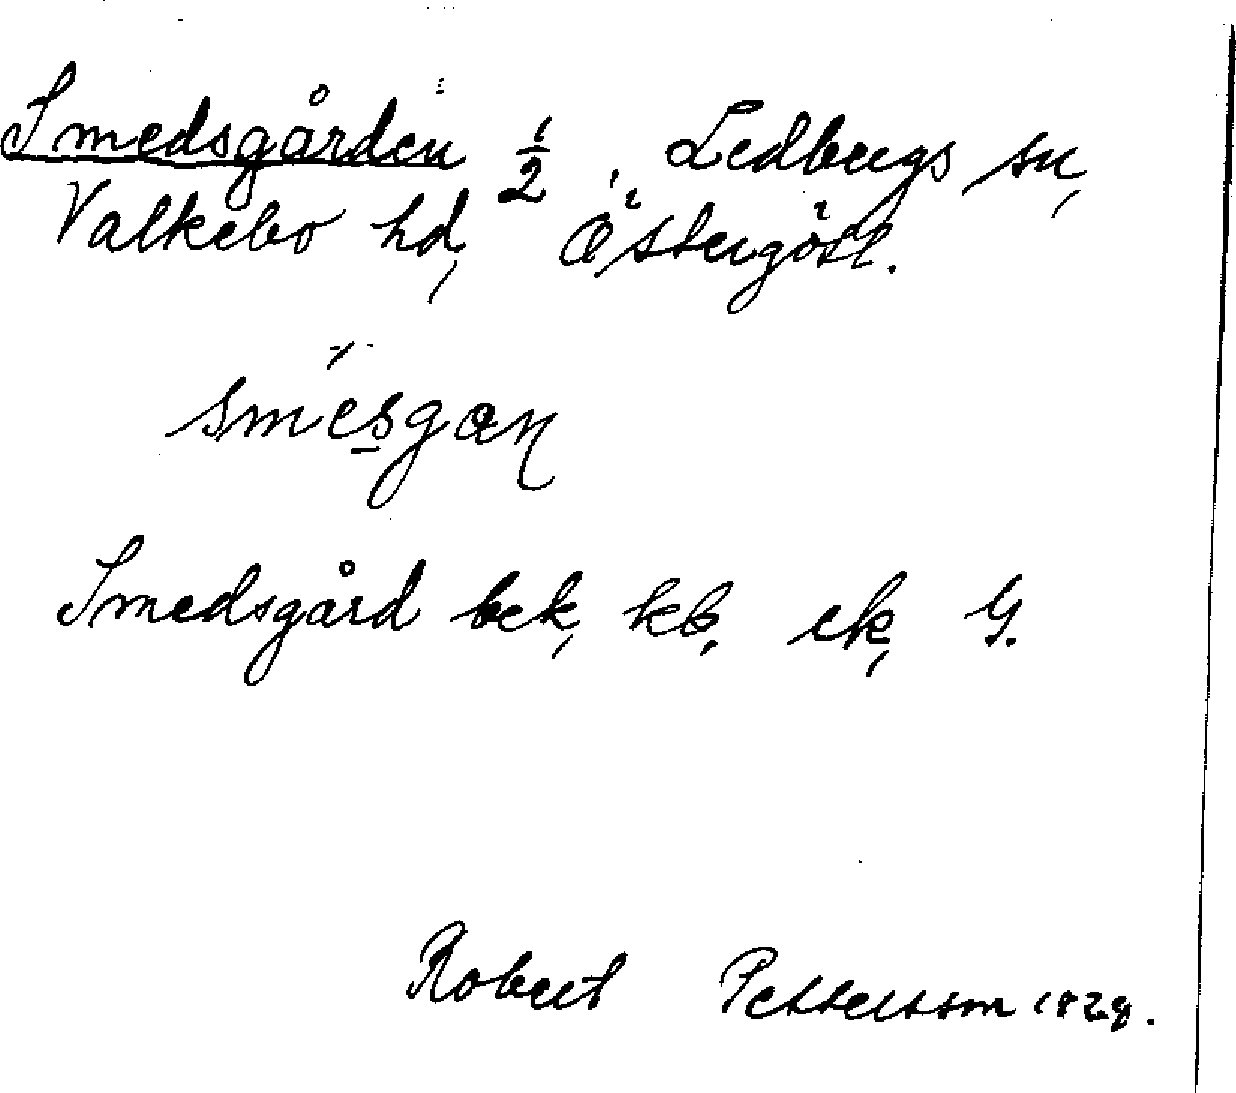 Smedsgården 1/2, Ledbergs sn,
Valkebo hd, Östergötl.
smésgan
Smedsgård bek, kb, ek, G.
Robert Pettersson 1929.